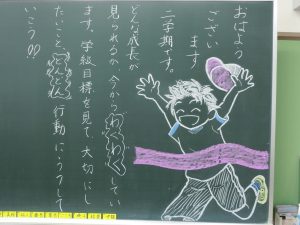 おはよう
ございます
二学期です。
どんな成長が
見られるか、今からわくわくしてい
ます。学級目標を見て、大切にし
たいこと、どんどん行動にうつして
いこう!!